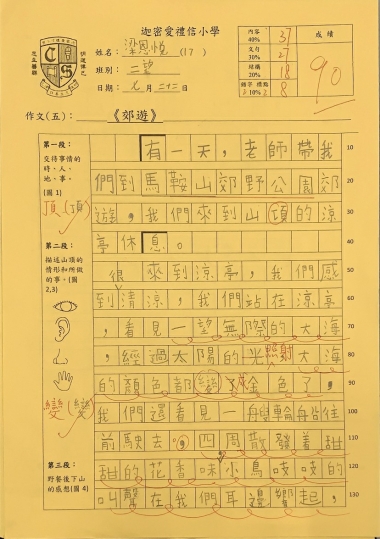 迦密愛禮信小學
姓名：梁恩悅(17)
班別：二望
日期：九月二十二日
內容 40% 37
文句 30% 27
結構 20% 18
錯字 標點 10% 8
成績
90
作文(五)：《郊遊》
第一段：
交待事情的
時、人、
地、事。
(圖1)
頂(頂)
第二段：
描述山頂的
情形和所做
的事。(圖
2,3)
變(變)
第三段：
野餐後下山
的感想(圖4)
有一天，老師帶我 10
們到馬鞍山郊野公園郊 20
遊，我們來到山頂的涼 30
亭休息。 40
很來到涼亭，我們感 50
到清涼，我們站在涼亭 60
，看見一望無際的大海 70
，經過太陽的光照射大海 80
的顏色都變了成金色了， 90
我們還看見一艘輪船往 100
前駛去，四周散發着甜 110
甜的花香味小鳥吱吱的 120
叫聲在我們耳邊響起， 130